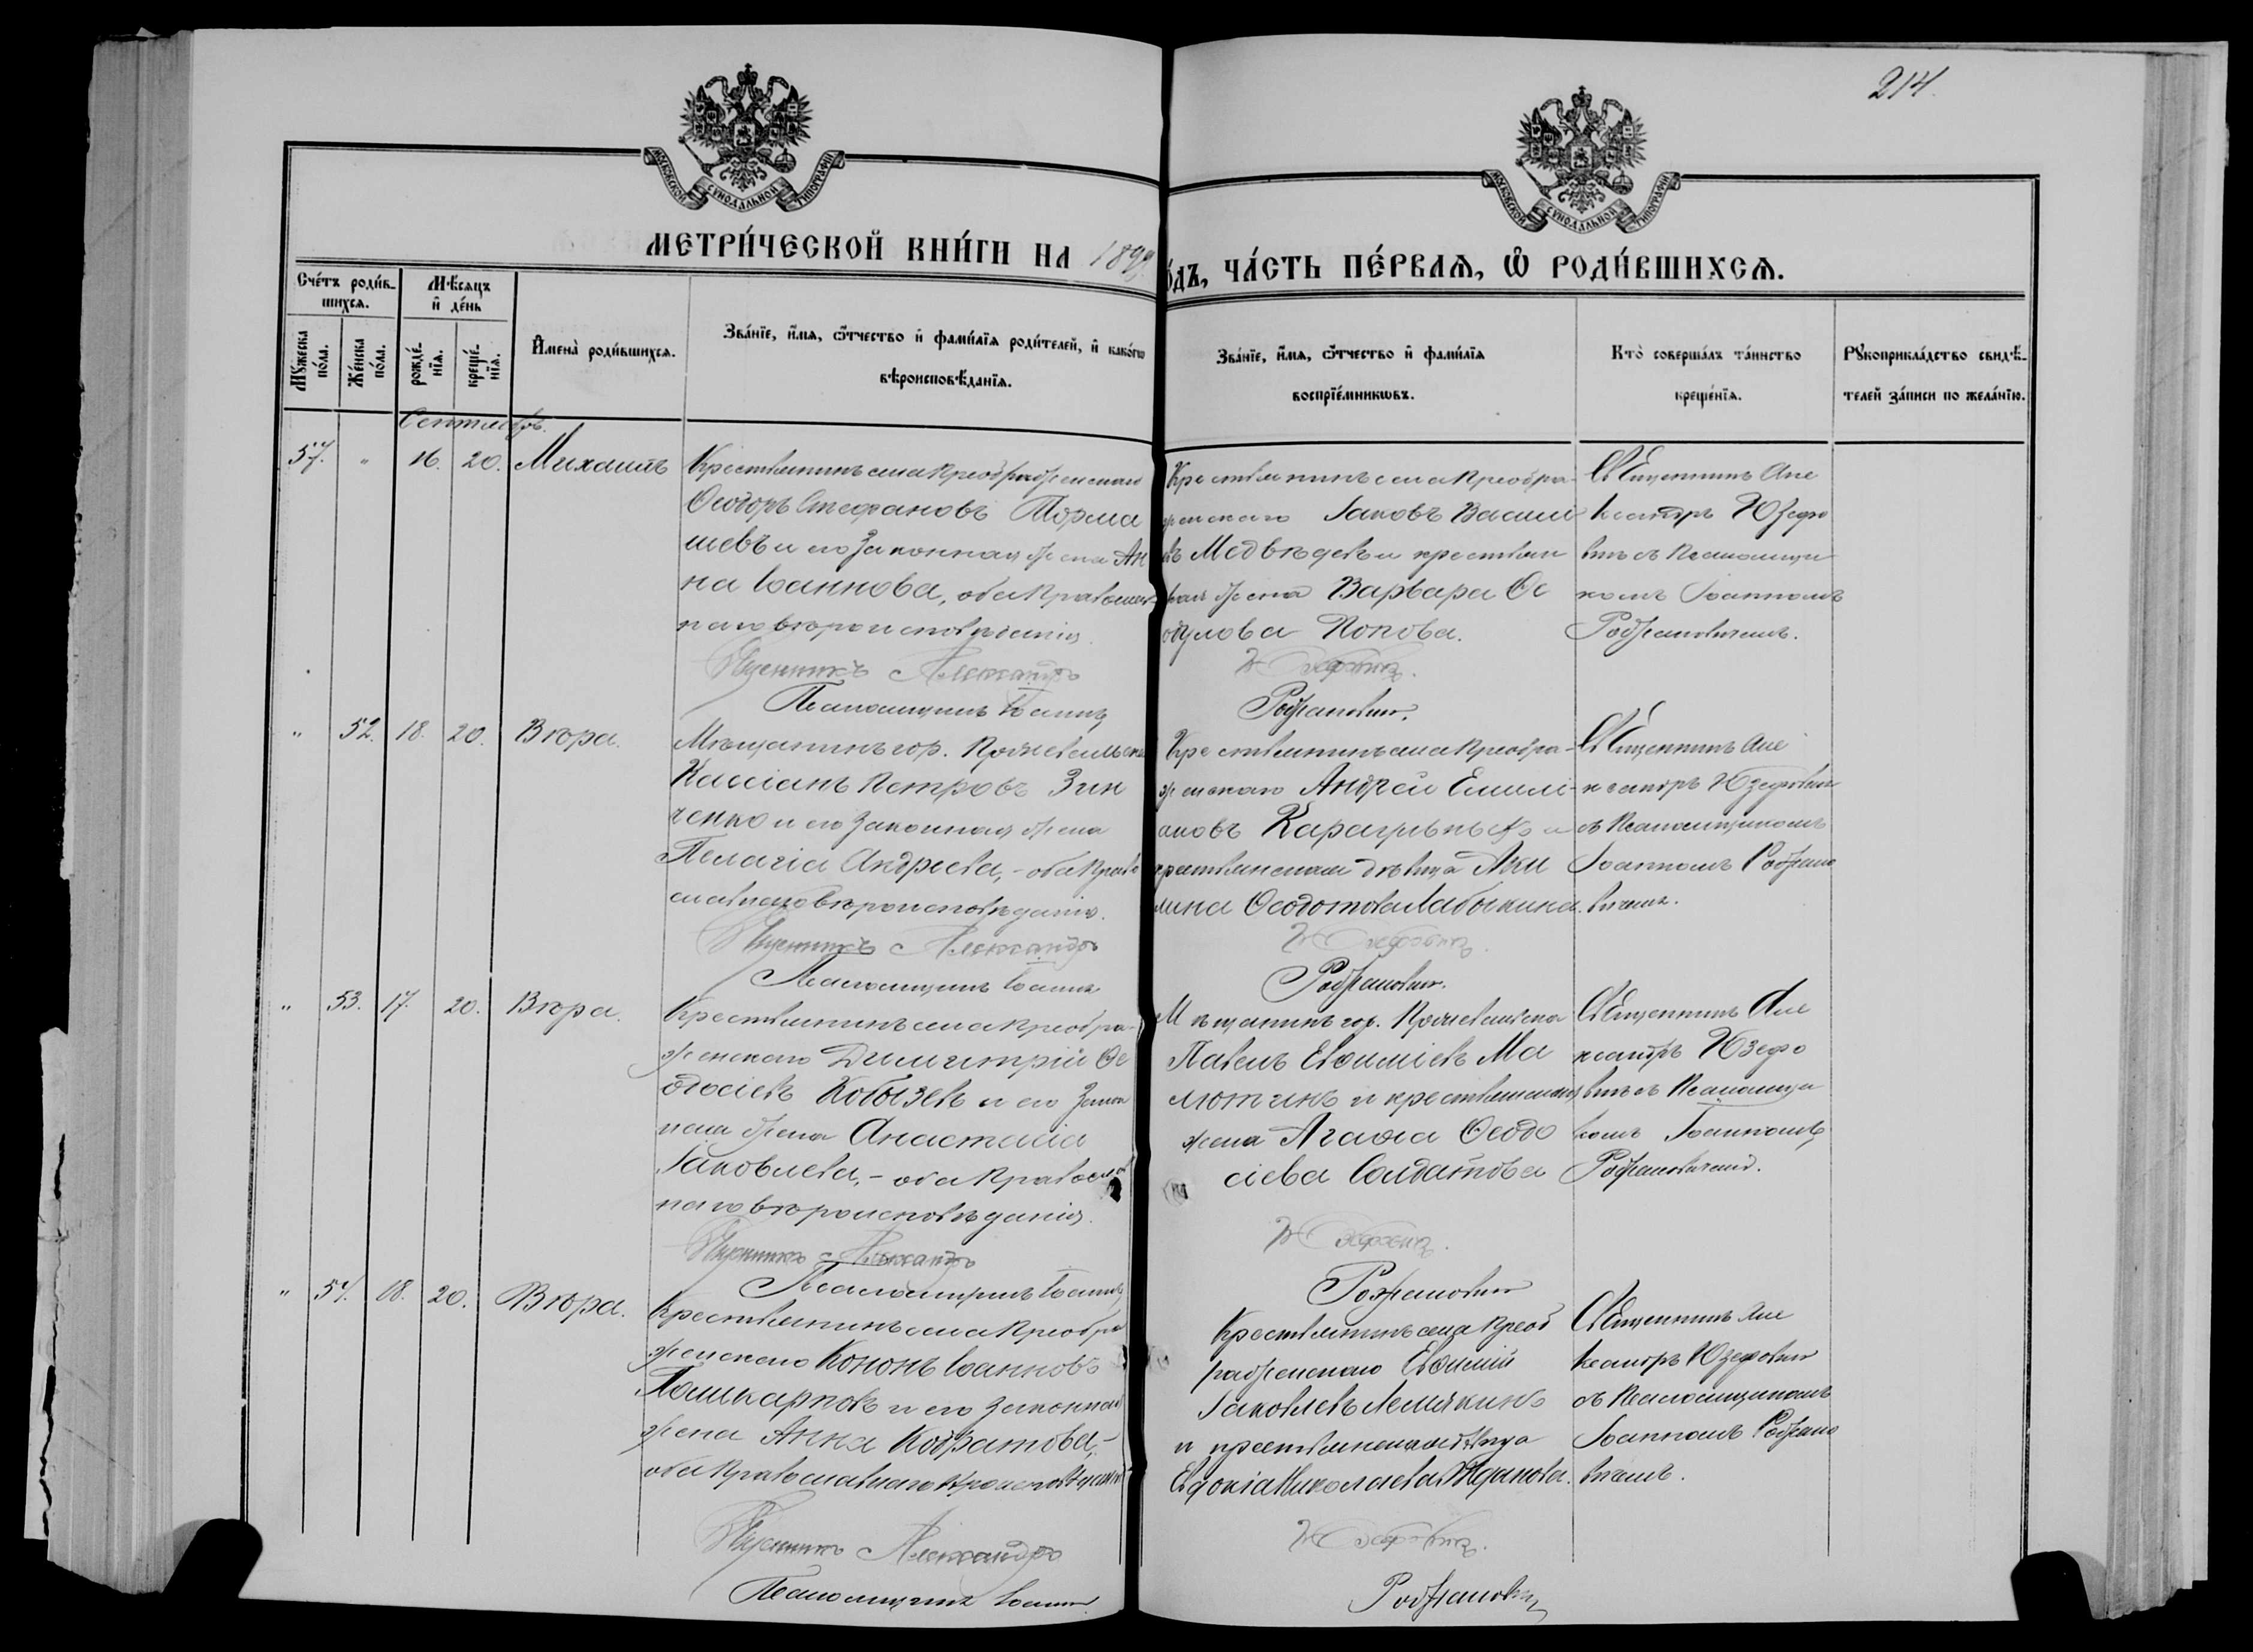 214.
МОСКОВСКОЙ СѴНОДАЛЬНОЙ ТИПОГРАФІИ
МОСКОВСКОЙ СѴНОДАЛЬНОЙ ТИПОГРАФІИ
МЕТРИ́ЧЕСКОЙ КНИ́ГИ НА 189
О́ДЪ, ЧА́СТЬ ПЕ́РВАѦ, Ѽ РОДИ́ВШИХСѦ.
Сче́тъ роди́в-
шихсѧ.
Мѣ́сѧцъ
и҆ де́нь
Мꙋ́жеска
по́ла.
Же́нска
по́ла.
рожде́-
нїѧ.
креще́-
нїѧ.
И҆мена̀ роди́вшихсѧ.
Зва́нїе, и҆́мѧ, ѻ҆́тчество и҆ фами́лїѧ роди́телей, и҆ како́гѡ
вѣроисповѣ́данїѧ.
Зва́нїе, и҆́мѧ, ѻ҆́тчество и҆ фами́лїѧ
воспрїе́мникѡвъ.
Кто̀ соверша́лъ та́инство
креще́нїѧ.
Рꙋкоприкла́дство свидѣ́-
телей за́писи по жела́нїю.
Сентябрь.
57. " 16. 20. Михаилъ
Крестьянинъ села Преображенскаго
Ѳеодоръ Стефановъ Торма
шевъ и его законная жена Ан
на Іоаннова, оба православ
наго вѣроисповѣданія.
Священникъ Александръ
Псаломщикъ Іоаннъ
Крестьянинъ села Преобра-
женскаго Іаковъ Васильe
въ Медвѣдевъ и крестьян
ская жена Варвара Ѳе
Попова.
Юзефовичъ.
Родзановичъ.
Священникъ Але
ксандръ Юзефо
вичъ съ Псаломщи
комъ Іоанномъ
" 52. 18. 20. Вѣра.
Мѣщанинъ гор.
Кассіанъ Петровъ Зин
ченко и его законная жена
Пелагія Андреева, - оба право
славнаго вѣроисповѣданія.
Священникъ Александръ
Псаломщикъ Іоаннъ
Крестьянинъ села Преобра-
женскаго Андрей Емелі-
ановъ и
крестьянская дѣвица Аки
лина Ѳеодотова Лабыкина.
Юзефовичъ.
Священникъ Але
ксандръ Юзефович
съ Псаломщикомъ
Іоанномъ
вичемъ.
" 53. 17. 20. Вѣра.
Крестьянинъ села Преобра-
женскаго Димитрій Ѳе
одосіевъ Кобызевъ и его закон
ная жена Анастасія
Іаковлева, - оба православ
наго вѣроисповѣданія.
Священникъ Александръ
Псаломщикъ Іоаннъ
Мѣщанинъ гор.
Павелъ Евѳиміевъ Ма
лютинъ и крестьянская
жена Агаѳія Ѳеодо
сіева Солдатова
Юзефовичъ.
Священникъ Але
ксандръ Юзефо
вичъ съ Псаломщи
комъ Іоанномъ
" 54. 18. 20. Вѣра.
Крестьянинъ села Преобра
женскаго Кононъ Іоанновъ
Пашкарновъ и его законная
жена Анна Кодратова, -
оба православнаго вѣроисповѣданія
Священникъ Александръ
Псаломщикъ Іоаннъ
Крестьянинъ села Преоб
раженскаго Евѳимій
Іаковлевъ Лемякинъ
и крестьянская дѣвица
Евдокія Николаева Жданова.
Юзефовичъ.
Священникъ Але
ксандръ Юзефович
съ Псаломщикомъ
Іоанномъ
вичемъ.